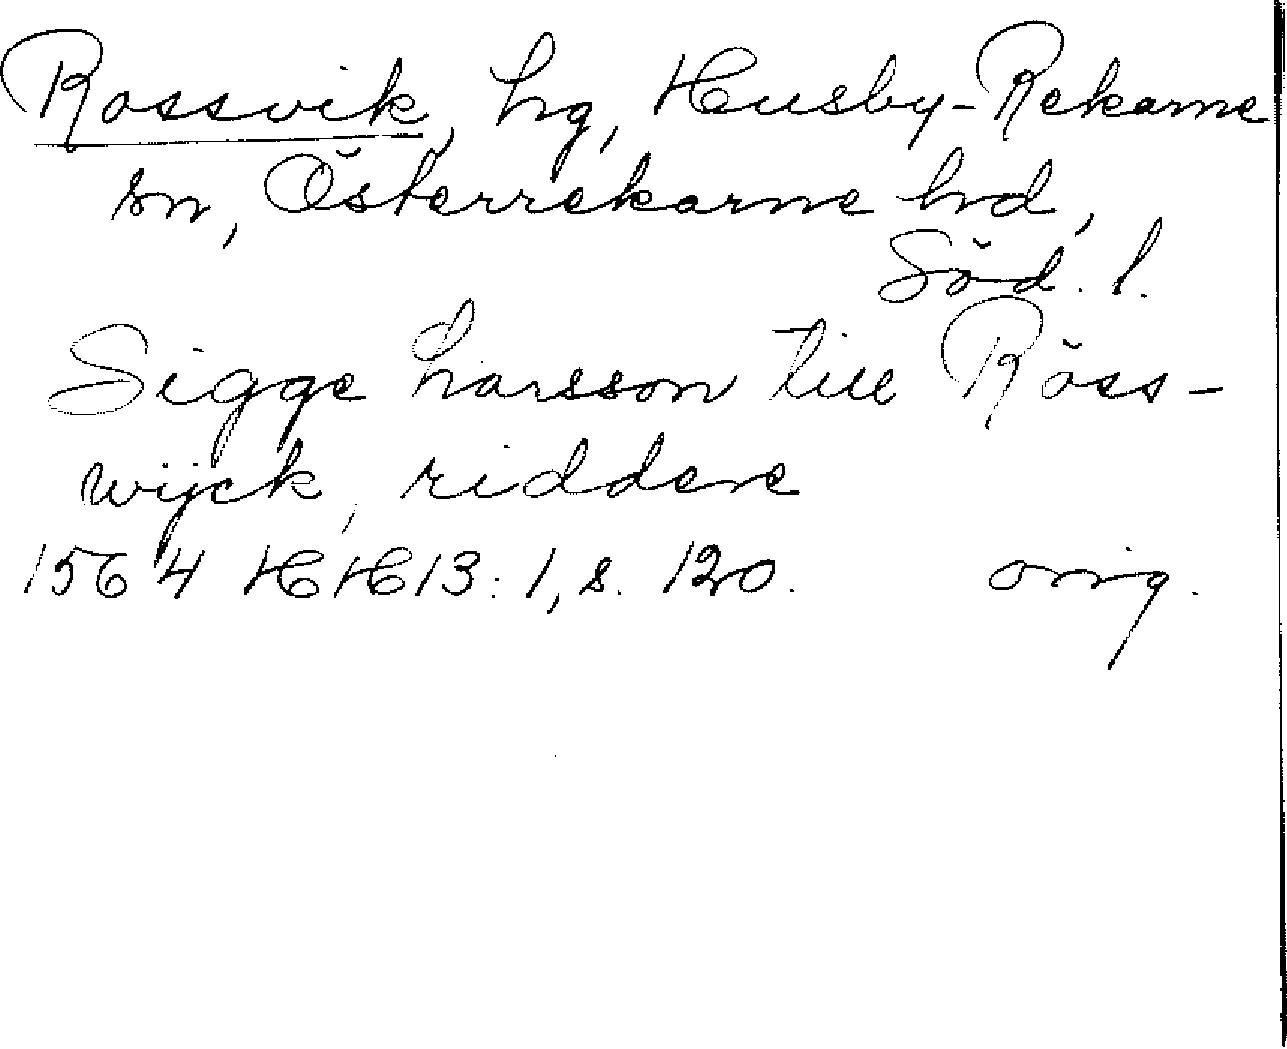 Rossvik, hg, Husby-Rekarne
sn, Österrekarne hd,
Söd. l.
Sigge Larsson till Röss-
wijck, riddere
1564 HH 13:1, s. 120. orig.